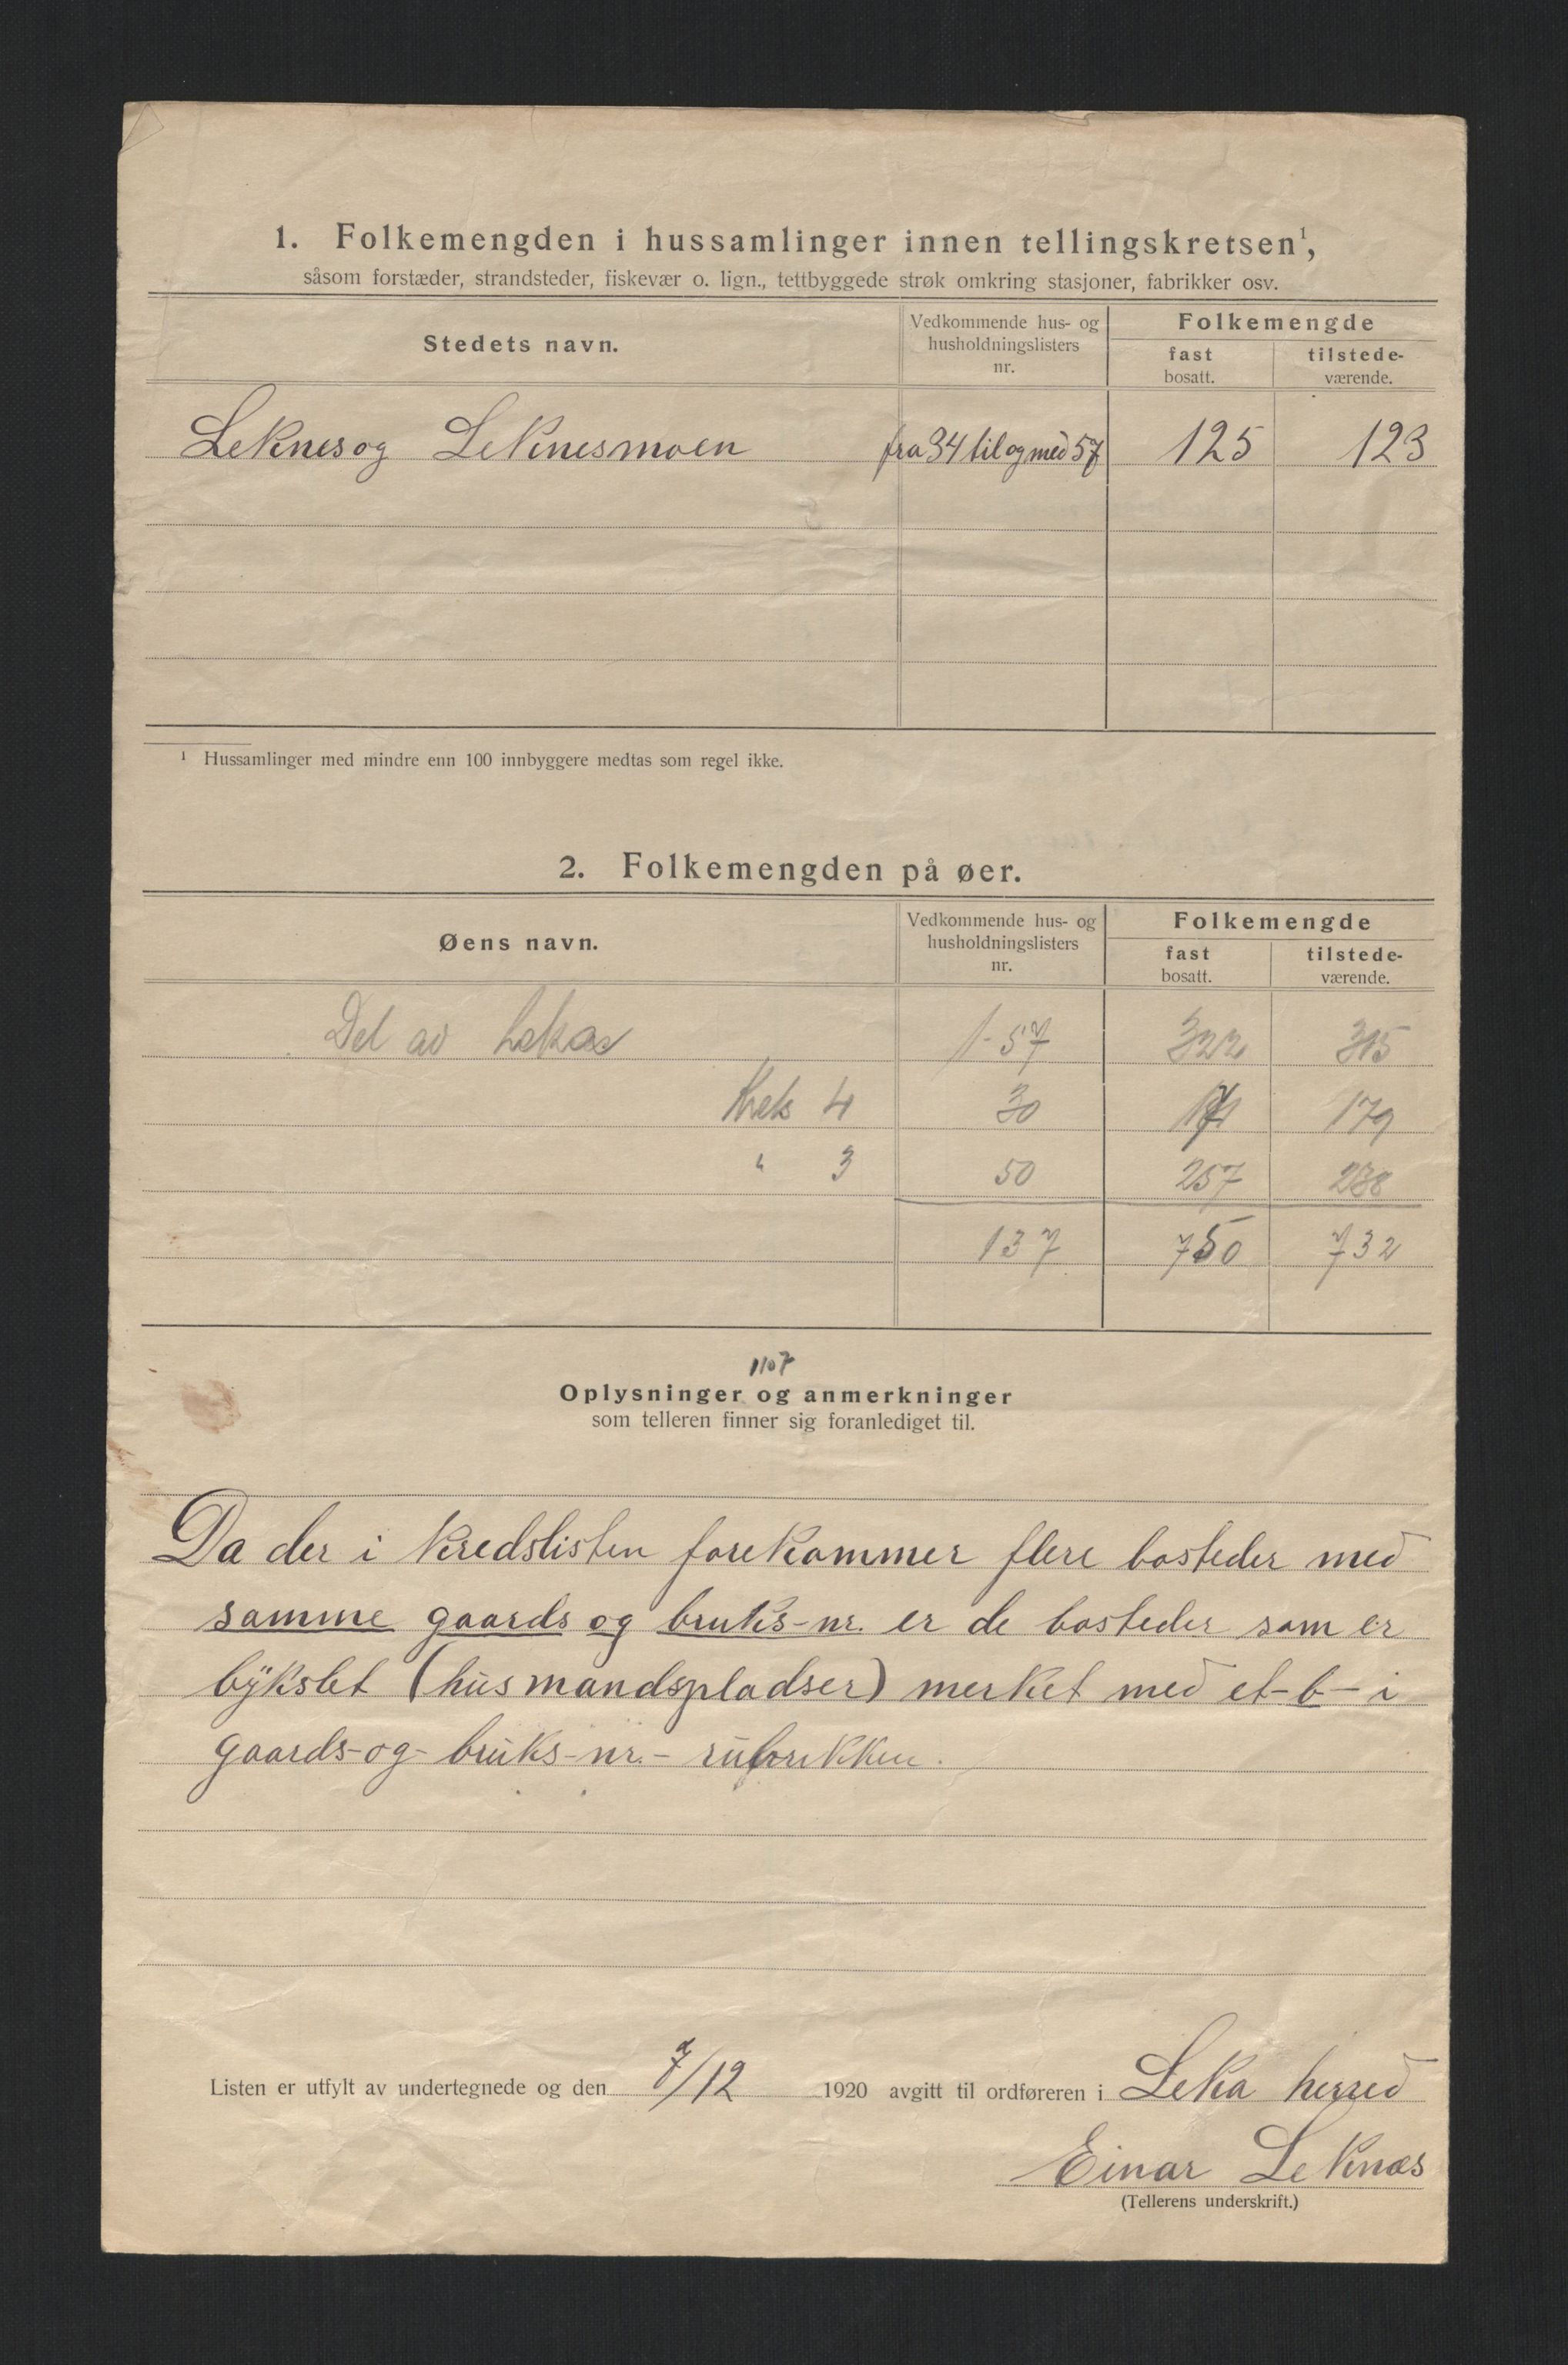 1. Folkemengden i hussamlinger innen tellingskretsen¹,
såsom forstæder, strandsteder, fiskevær o. lign., tettbyggede strøk omkring stasjoner, fabrikker osv.
Stedets navn. Vedkommende hus- og husholdningslisters nr. Folkemengde
fast bosatt. tilstede-værende.
Leknes og Leknesmoen fra 34 til og med 57 125 123
¹ Hussamlinger med mindre enn 100 innbyggere medtas som regel ikke.
2. Folkemengden på øer.
Øens navn. Vedkommende hus- og husholdningslisters nr. Folkemengde
fast bosatt. tilstede-værende.
Del av Leka 1-57 322 315
Krets 4 30 179
" 3 50 257 238
137 750 732
1107
Oplysninger og anmerkninger
som telleren finner sig foranlediget til.
Da der i Kredslisten forekommer flere bosteder med
samme gaards og bruks-nr. er de bosteder som er
bykslet (husmandspladser) merket med et -b- i
gaards-og-bruks-nr.-rubrikken.
Listen er utfylt av undertegnede og den 7/12 1920 avgitt til ordføreren i Leka herred
Einar Leknæs
(Tellerens underskrift.)